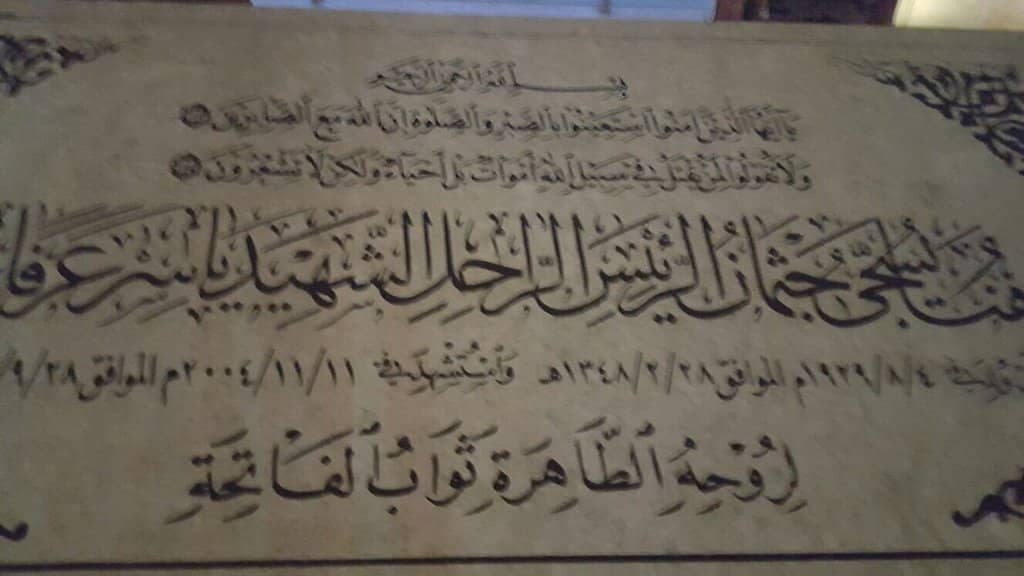 بسم الله الرحمن الرحيم
يا أيها الذين آمنوا استعينوا بالصبر والصلاة إن الله مع الصابرين
ولا تقولوا لمن يقتل في سبيل الله أموات بل أحياء ولكن لا تشعرون
هنا يسجى جثمان الرئيس الراحل الشهيد ياسر عرفا
ولد في ١٩٢٩/٨/٤م الموافق ١٣٤٨/٢/٢٨هـ واستشهد في ٢٠٠٤/١١/١١م الموافق ٩/٢٨/
لِرُوْحِهِ الطَّاهِرَةِ ثَوَابُ الفَاتِحَةِ